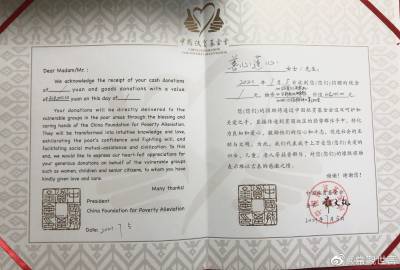 中国扶贫基金会
Dear Madam/Mr.:
We acknowledge the receipt of your cash donations
at / yuan and goods donations with a value
of yuan on this day of /
Your donations will be directly delivered to the
vulnerable groups in the poor areas through the blessing and
caring hands of the China Foundation for Poverty Alleviation.
They will be transformed into intuitive knowledge and love,
exhilarating the poor's confidence and fighting will, and
facilitating social mutual-assistance and civilization. To this
end, we would like to express our heart-felt appreciations for
your generous donations on behalf of the vulnerable groups
such as women, children and senior citizens, to whom you
have kindly given love and care.
Many thanks!
President
China Foundation for Poverty Alleviation
Date: 2021 7 5
善心莲心 女士/先生:
2021年7月5日收到您(们)捐赠的现金
/ 元,物资
您(们)的捐赠将通过中国扶贫基金会这双呵护和
关爱之手,直接传递到贫困地区的弱势群体手中,转化
为良知和爱心,鼓舞他们的信心和斗志,促进社会的互
助与文明。为此,我们代表成千上万受益您(们)关爱的
妇女、儿童、老人等弱势群体,对您(们)的慷慨捐助
表示难以言表的感激之情。
谢谢!谢谢您!
中国扶贫基金会
2021年7月5日